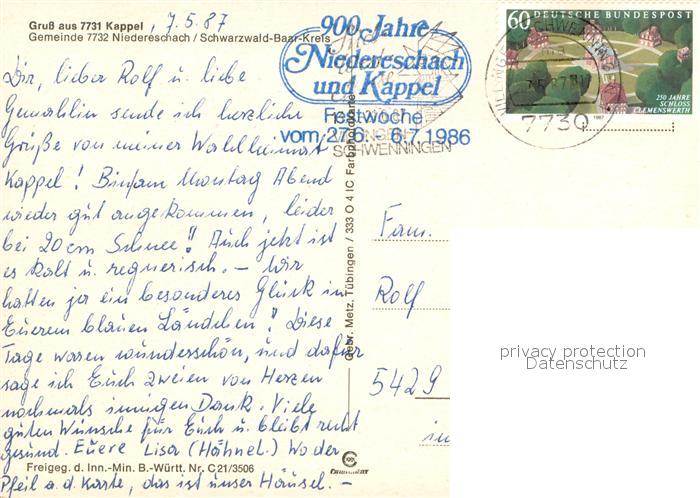 Gruß aus 7731 Kappel, 7.5.87
Gemeinde 7732 Niedereschach / Schwarzwald-Baar-Kreis
Dir, lieber Rolf u. liebe
Gemahlin sende ich herzliche
Grüße von meiner Wahlheimat
Kappel! Bin am Montag Abend
wieder gut angekommen, leider
bei 20 cm Schnee! Auch jetzt ist
es kalt u. regnerisch. – Wir
hatten ja ein besonderes Glück in
Euerem blauen Ländchen! Diese
Tage waren wunderschön, und dafür
sage ich Euch zweien von Herzen
nochmals innigen Dank. Viele
guten Wünsche für Euch u. bleibt recht
gesund. Euere Lisa (Hähnel.) Wo der
Freigeg. d. Inn.-Min. B.-Württ. Nr. C 21/3506
Pfeil a. d. Karte, das ist unser Häusel. –
900 Jahre
Niedereschach
und Kappel
Festwoche
vom 27.6. - 6.7.1986
SCHWENNINGEN
Gebr. Metz, Tübingen / 333 O 4 IC Farbphotokarte
60 DEUTSCHE BUNDESPOST
250 JAHRE
SCHLOSS
CLEMENSWERTH
1987
7730
Fam.
Rolf
5429
in
privacy protection
Datenschutz